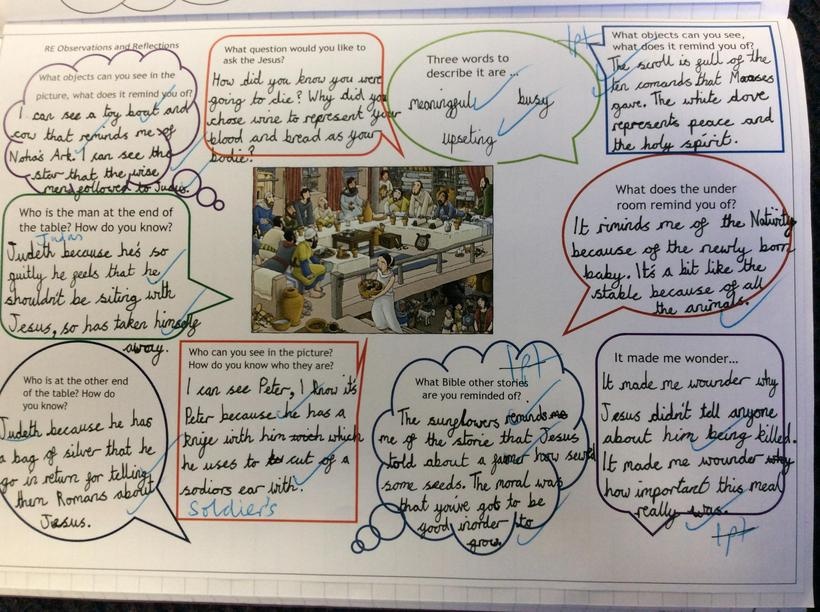 RE Observations and Reflections
What objects can you see in the
picture, what does it remind you of?
I can see a toy boat and
cow that reminds me of
Noha's Ark. I can see the
star that the wise
men followed to Jusus.
What question would you like to
ask the Jesus?
How did you know you were
going to die? Why did you
chose wine to represent your
blood and bread as your
bodie?
Three words to
describe it are ...
meaningful busy
upseting
tpt
What objects can you see,
what does it remind you of?
The scroll is full of the
ten comands that Moases
gave. The white dove
represents peace and
the holy spirit.
Who is the man at the end of
the table? How do you know?
Judas
Judeth because he's so
guilty he feels that he
shouldn't be siting with
Jesus, so has taken himself
away.
What does the under
room remind you of?
It riminds me of the Nativity
because of the newly born
baby. It's a bit like the
stable because of all
the animals.
Who is at the other end
of the table? How do
you know?
Judeth because he has
a bag of silver that he
go in return for telling
them Romans about
Jesus.
Who can you see in the picture?
How do you know who they are?
I can see Peter, I know it's
Peter because he has a
knife with him which
he uses to cut of a
sodiors ear with.
Soldier's
tpt
What Bible other stories
are you reminded of?
The sunflowers reminds me
me of the storie that Jesus
told about a farmer how
some seeds. The moral was
that you've got to be
good inorder to
grow.
It made me wonder...
It made me wounder why
Jesus didn't tell anyone
about him being killed.
It made me wounder why
how important this meal
really was.
tpt